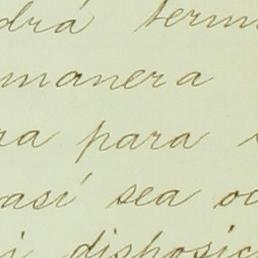 drá termi
manera
ra para
así sea oc
i disposic